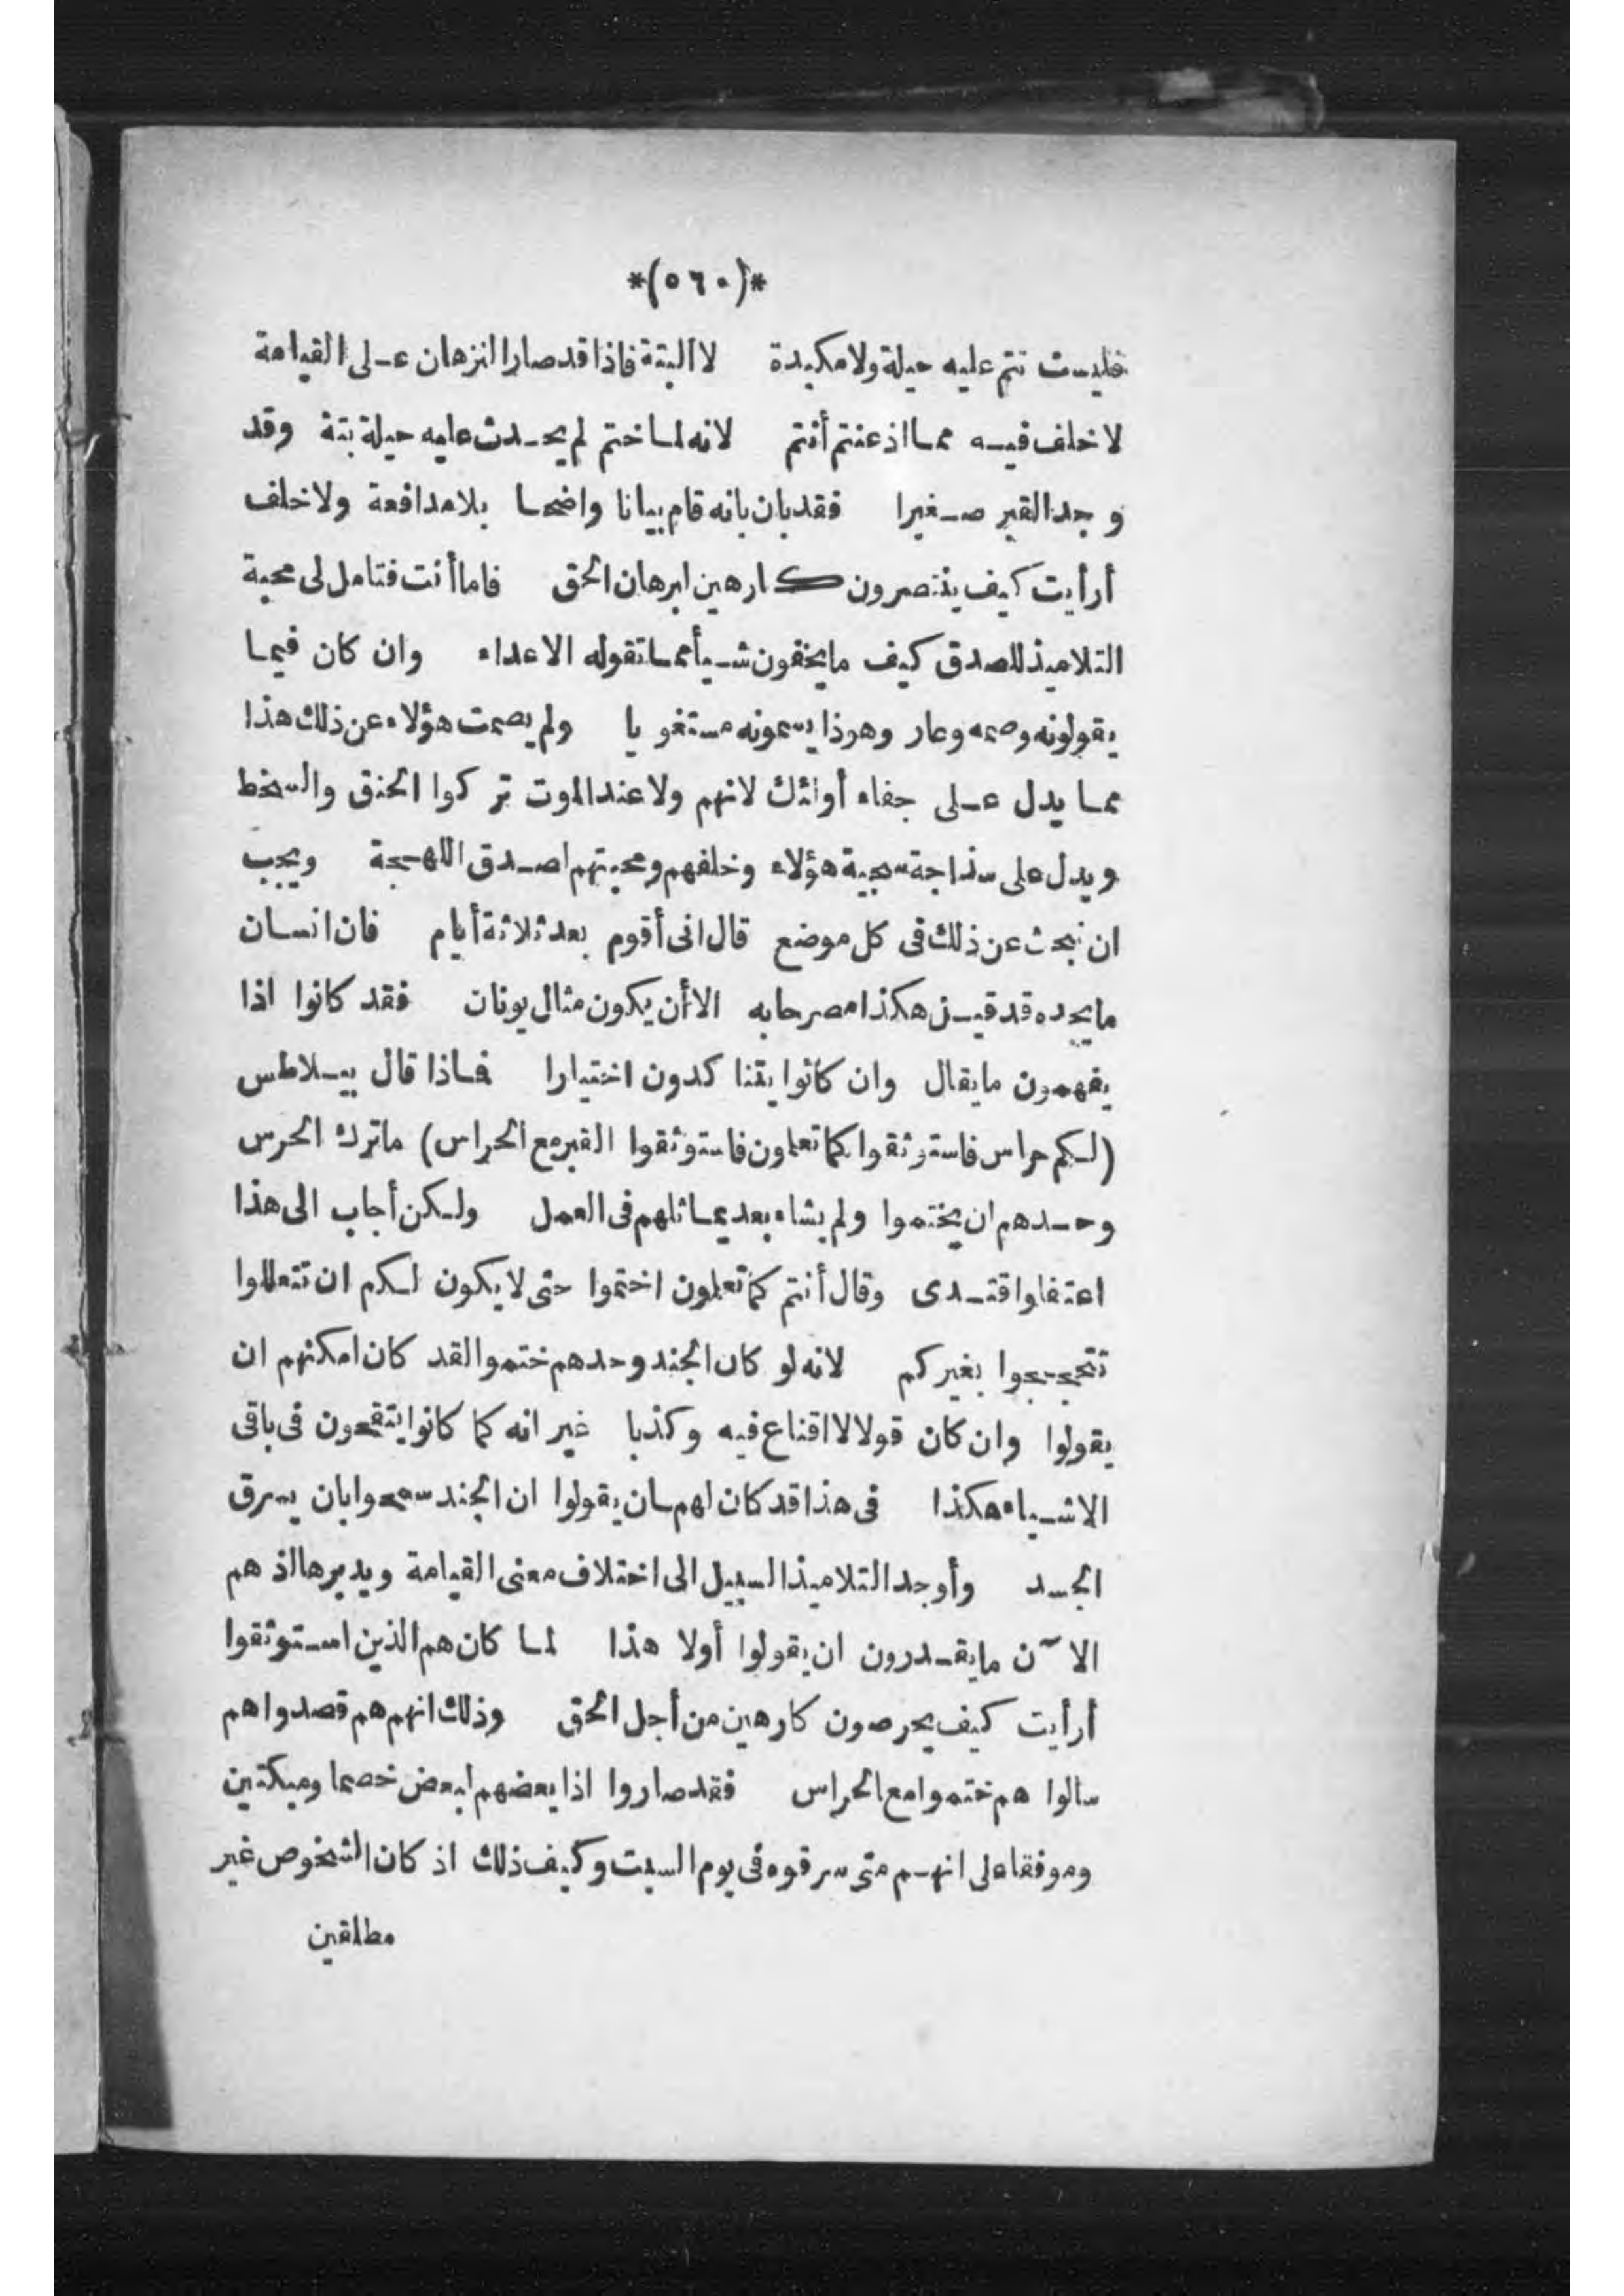 *(٥٦٠)*
فليست تتم عليه حيلة ولا مكيدة لا ألبتة فاذا قد صار البرهان على القيامة
لا خلف فيه مما اذعنتم أنتم لانه لما ختم لم يحدث عليه حيلة بتة وقد
وجد القبر صغيرا فقد بان بانه قام بيانا واضحا بلا مدافعة ولا خلف
أرأيت كيف ينتصرون كارهين لبرهان الحق فاما أنت فتامل لى محبة
التلاميذ للصدق كيف ما يخفون شيأ مما تقوله الاعداء وان كان فيما
يقولونه وصمه وعار وهوذا يسمونه مستغويا ولم يصمت هؤلاء عن ذلك هذا
مما يدل على جفاء أولئك لانهم ولا عند الموت تركوا الحنق والسخط
ويدل على سذاجة سجية هؤلاء وخلقهم ومحبتهم لصدق اللهجة ويجب
ان نبحث عن ذلك فى كل موضع قال انى أقوم بعد ثلاثة أيام فان انسان
ما يجده قد قيل هكذا مصرحا به الا أن يكون مثال يونان فقد كانوا اذا
يفهمون ما يقال وان كانوا يتنا كدون اختيارا فماذا قال بيلاطس
(لكم حراس فاستوثقوا كما تعلمون فاستوثقوا القبر مع الحراس) ما ترك الحرس
وحدهم ان يختموا ولم يشاء بعد يماثلهم فى العمل ولكن أجاب الى هذا
اعتفاوا قتدى وقال أنتم كما تعلمون اختموا حتى لا يكون لكم ان تتعللوا
تتحججوا بغيركم لانه لو كان الجند وحدهم ختموا لقد كان امكنهم ان
يقولوا وان كان قولا لا اقناع فيه وكذبا غير انه كما كانوا يتقحون فى باقى
الاشياء هكذا فى هذا قد كان لهم ان يقولوا ان الجند سمحوا بان يسرق
الجسد وأوجد التلاميذ السبيل الى اختلاف معنى القيامة ويدبرها لذهم
الآن ما يقدرون ان يقولوا أولا هذا لما كان هم الذين استوثقوا
أرأيت كيف يحرصون كارهين من أجل الحق وذلك انهم هم قصدوا هم
سالوا هم ختموا مع الحراس فقد صاروا اذا بعضهم لبعض خصما ومبكتين
وموفقا على انهم متى سرقوه فى يوم السبت وكيف ذلك اذ كان الشخوص غير
مطلقين